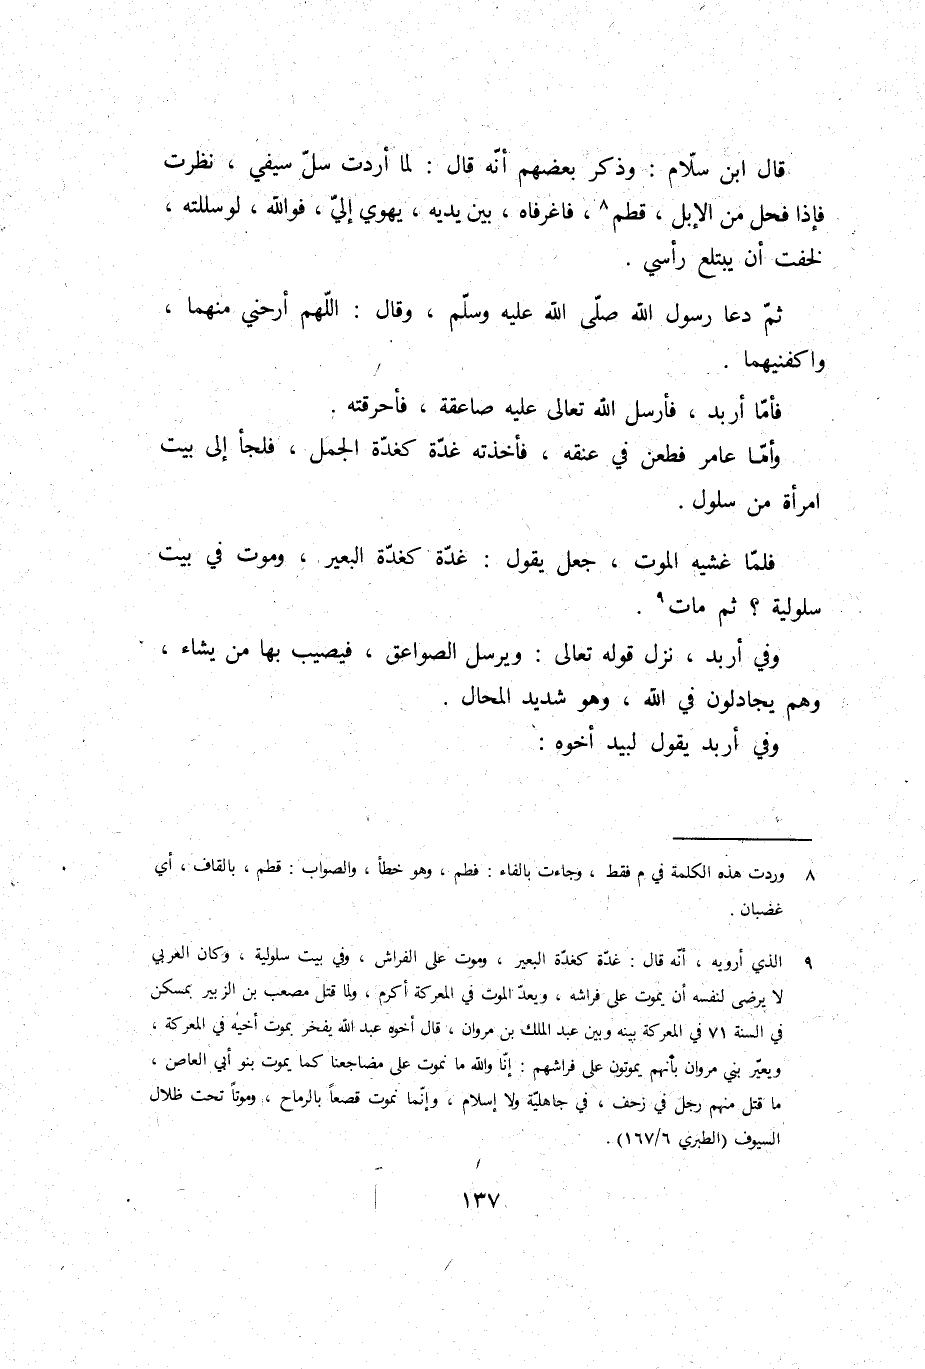 قال ابن سلّام : وذكر بعضهم أنّه قال : لما أردت سلّ سيفي ، نظرت
فإذا فحل من الإبل ، قطم٨ ، فاغرفاه ، بين يديه ، يهوي إليّ ، فوالله ، لو سللته ،
لخفت أن يبتلع رأسي .
ثمّ دعا رسول الله صلّى الله عليه وسلّم ، وقال : اللّهم أرحني منهما ،
واكفنيهما .
فأمّا أربد ، فأرسل الله تعالى عليه صاعقة ، فأحرقته .
وأمّا عامر فطعن في عنقه ، فأخذته غدّة كغدّة الجمل ، فلجأ إلى بيت
امرأة من سلول .
فلمّا غشيه الموت ، جعل يقول : غدّة كغدّة البعير ، وموت في بيت
سلولية ؟ ثم مات٩ .
وفي أربد ، نزل قوله تعالى : ويرسل الصواعق ، فيصيب بها من يشاء ،
وهم يجادلون في الله ، وهو شديد المحال .
وفي أربد يقول لبيد أخوه :
٨ وردت هذه الكلمة في م فقط ، وجاءت بالفاء : فطم ، وهو خطأ ، والصواب : قطم ، بالقاف ، أي
غضبان .
٩ الذي أرويه ، أنّه قال : غدّة كغدّة البعير ، وموت على الفراش ، وفي بيت سلولية ، وكان العربي
لا يرضى لنفسه أن يموت على فراشه ، ويعدّ الموت في المعركة أكرم ، ولما قتل مصعب بن الزبير بمسكن
في السنة ٧١ في المعركة بينه وبين عبد الملك بن مروان ، قال أخوه عبد الله يفخر بموت أخيه في المعركة ،
ويعيّر بني مروان بأنهم يموتون على فراشهم : إنّا والله ما نموت على مضاجعنا كما يموت بنو أبي العاص ،
ما قتل منهم رجل في زحف ، في جاهليّة ولا إسلام ، وإنّما نموت قصعاً بالرماح ، وموتاً تحت ظلال
السيوف (الطبري ١٦٧/٦) .
١٣٧